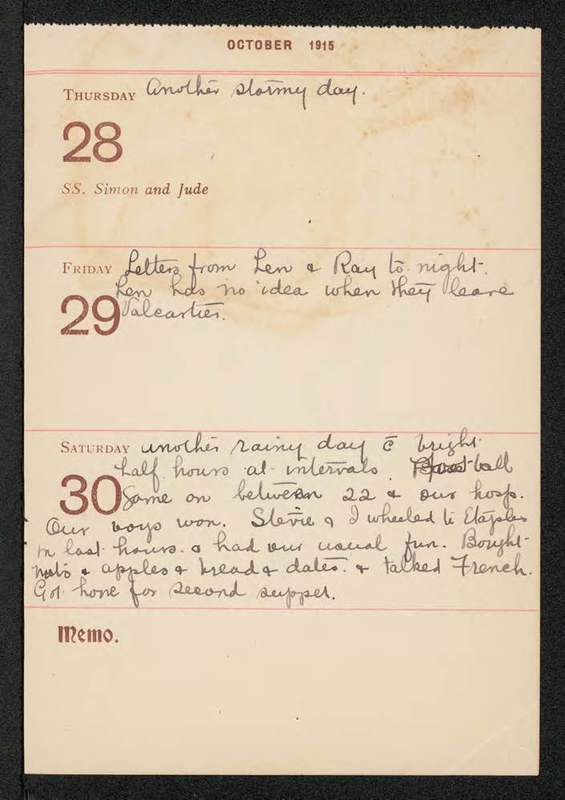 OCTOBER 1915
THURSDAY Another stormy day.
28
SS. Simon and Jude
FRIDAY Letters from Len & Ray to-night.
Len has no idea when they leave
29 Valcartier.
SATURDAY Another rainy day c̄ bright
half hours at intervals. ball
30 Game on between 22 & our hosp.
Our boys won. Stevie & I wheeled to Etaples
in last hours & had our usual fun. Bought
nuts & apples & bread & dates. & talked French.
Got home for second supper.
Memo.